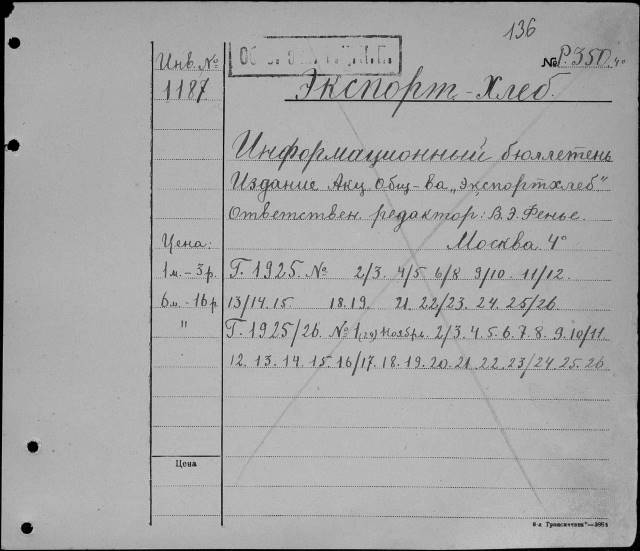 136
Инв. №
1187
№ Р.350. 4°
Экспорт-Хлеб.
Информационный бюллетень
Издание Акц. Общ-ва „Экспортхлеб"
Ответствен. редактор: В.Э.
Москва. 4°
Цена:
1 м. - 3 р. Г. 1925. № 2/3. 4/5. 6/8 9/10. 11/12.
6 м. - 16 р 13/14. 15. 18. 19. 21. 22/23. 24. 25/26
" Г. 1925/26. № 1 Ноябрь. 2/3. 4. 5. 6. 7. 8. 9. 10/11
12. 13. 14. 15. 16/17. 18. 19. 20. 21. 22. 23/24. 25. 26
Цена